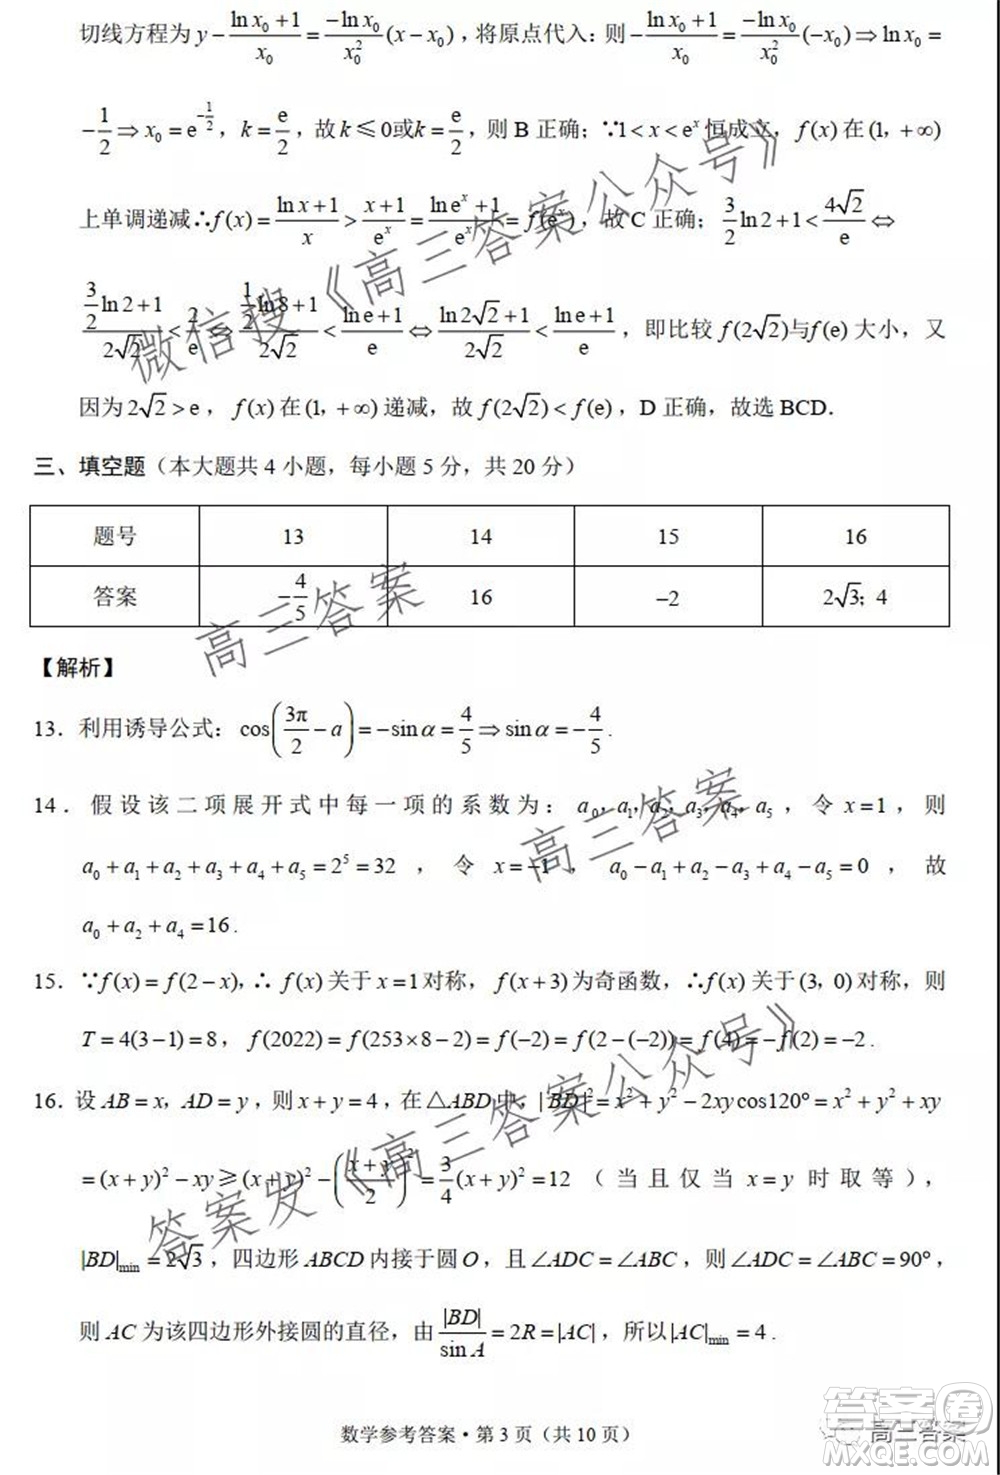 切线方程为 y − (ln x₀+1)/x₀ = (−ln x₀)/x₀² (x − x₀)，将原点代入：则 −(ln x₀+1)/x₀ = (−ln x₀)/x₀² (−x₀) ⇒ ln x₀ =
−1/2 ⇒ x₀ = e^(−1/2)，k = e/2，故 k ≤ 0或k = e/2，则 B 正确；∵1 < x < eˣ 恒成立，f(x) 在 (1，+∞)
上单调递减∴f(x) = (ln x+1)/x > (x+1)/eˣ = (ln eˣ+1)/eˣ = f(eˣ)，故 C 正确；3/2 ln2+1 < 4√2/e ⇔
(3/2 ln2+1)/(2√2) < 2/e ⇔ (1/2 ln8+1)/(2√2) < (ln e+1)/e ⇔ (ln2√2+1)/(2√2) < (ln e+1)/e，即比较 f(2√2)与f(e) 大小，又
因为 2√2 > e，f(x) 在 (1，+∞) 递减，故 f(2√2) < f(e)，D 正确，故选 BCD．
三、填空题（本大题共 4 小题，每小题 5 分，共 20 分）
题号 13 14 15 16
答案 −4/5 16 −2 2√3；4
【解析】
13．利用诱导公式：cos(3π/2 − a) = −sin α = 4/5 ⇒ sin α = −4/5．
14．假设该二项展开式中每一项的系数为：a₀，a₁，a₂，a₃，a₄，a₅，令 x=1，则
a₀+a₁+a₂+a₃+a₄+a₅=2⁵=32，令 x=−1，a₀−a₁+a₂−a₃+a₄−a₅=0，故
a₀+a₂+a₄=16．
15．∵f(x)=f(2−x)，∴ f(x) 关于 x=1 对称，f(x+3) 为奇函数，∴f(x) 关于 (3，0) 对称，则
T=4(3−1)=8，f(2022)=f(253×8−2)=f(−2)=f(2−(−2))=f(4)=−f(2)=−2．
16．设 AB=x，AD=y，则 x+y=4，在 △ABD 中，|BD|²=x²+y²−2xycos120°=x²+y²+xy
=(x+y)²−xy≥(x+y)²−((x+y)/2)²=3/4(x+y)²=12（当且仅当 x=y 时取等），
|BD|min=2√3，四边形 ABCD 内接于圆 O，且 ∠ADC=∠ABC，则 ∠ADC=∠ABC=90°，
则 AC 为该四边形外接圆的直径，由 |BD|/sin A=2R=|AC|，所以 |AC|min=4．
数学参考答案·第 3 页（共 10 页）
微信搜《高三答案公众号》
高三答案
高三答案
答案发《高三答案公众号》
高三答案
答案圈
MXQE.COM